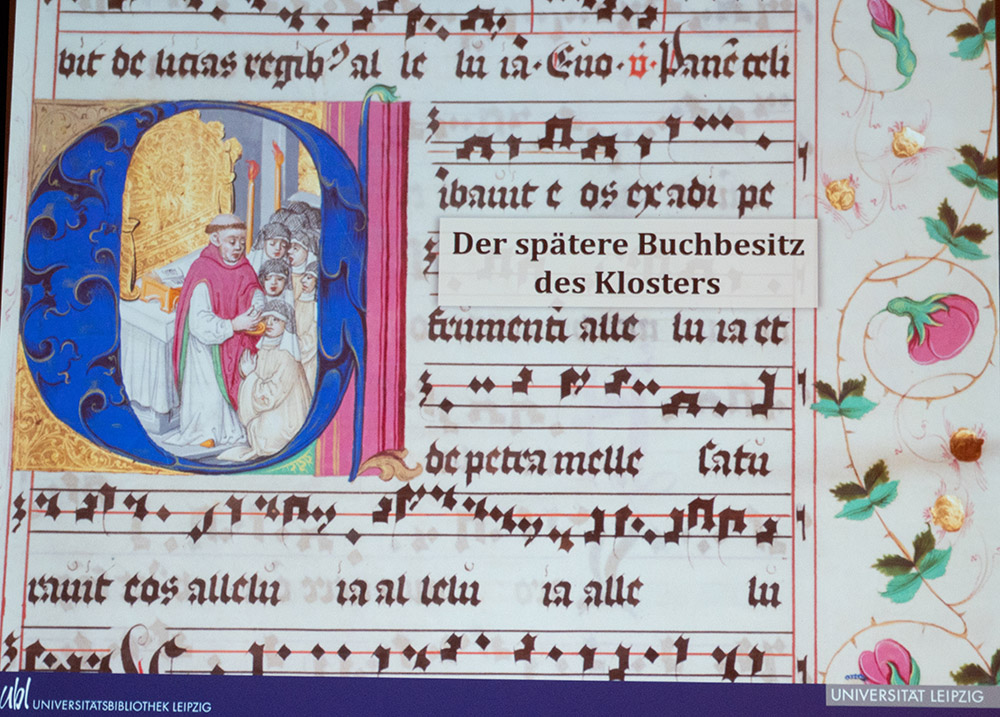 vit de licias regibꝰ al le lu ia· Euo· v̇· Panē celi
C
ibavit e os ex adi pe
Der spätere Buchbesitz
des Klosters
frumenti alle lu ia et
de petra melle Satu
ravit eos allelu ia al lelu ia alle lu
ubl UNIVERSITÄTSBIBLIOTHEK LEIPZIG
UNIVERSITÄT LEIPZIG